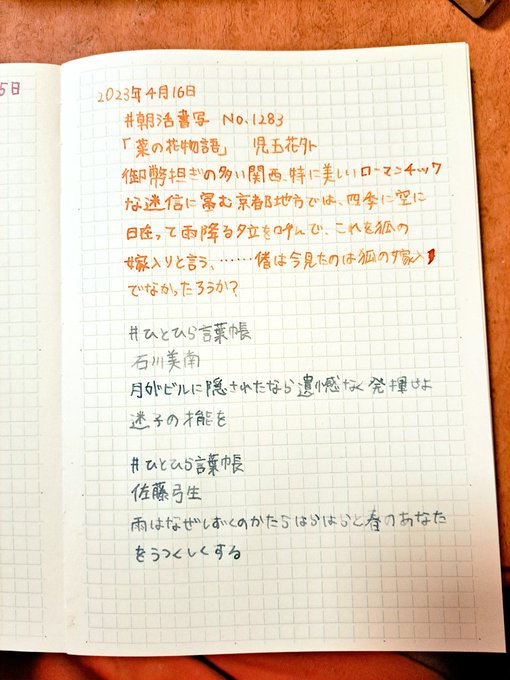 5日
2023年4月16日
#朝活書写 No.1283
「菜の花物語」 児玉花外
御幣担ぎの多い関西、特に美しいローマンチック
な迷信に富む京都地方では、四季に空に
日在って雨降る夕立を呼んで、これを狐の
嫁入りと言う、……偖は今見たのは狐の嫁入り
でなかったろうか?
#ひとひら言葉帳
石川美南
月がビルに隠されたなら遺憾なく発揮せよ
迷子の才能を
#ひとひら言葉帳
佐藤弓生
雨はなぜしずくのかたちはらはらと春のあなた
をうつくしくする